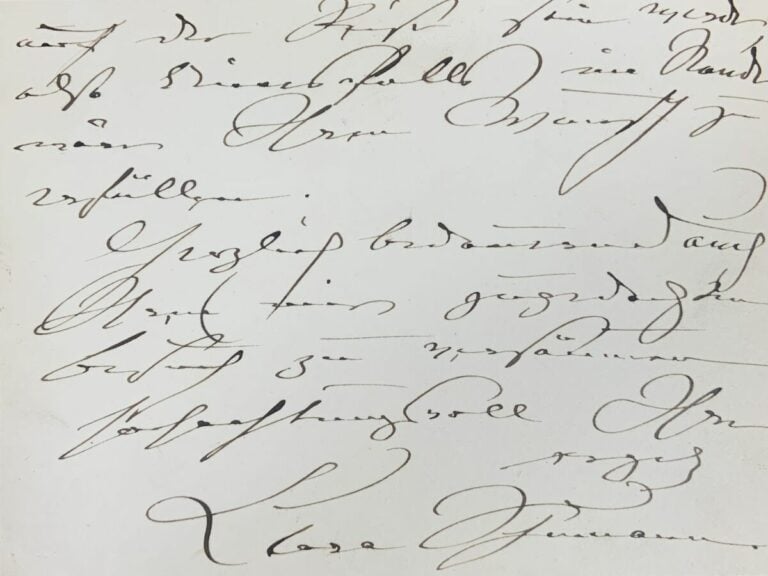 auf der Reise sein werde,
also keinesfalls im Stande
wäre Ihren Wunsch zu
erfüllen.
Herzlich bedauernd auch
Ihren mir zugedachten
Besuch zu versäumen
hochachtungsvoll Ihre
ergeb
Clara Schumann.